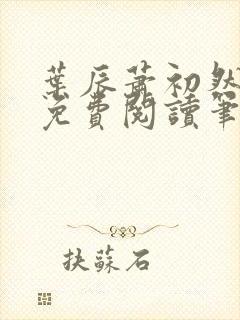 葉辰蕭初然
免費閱讀筆
扶蘇石